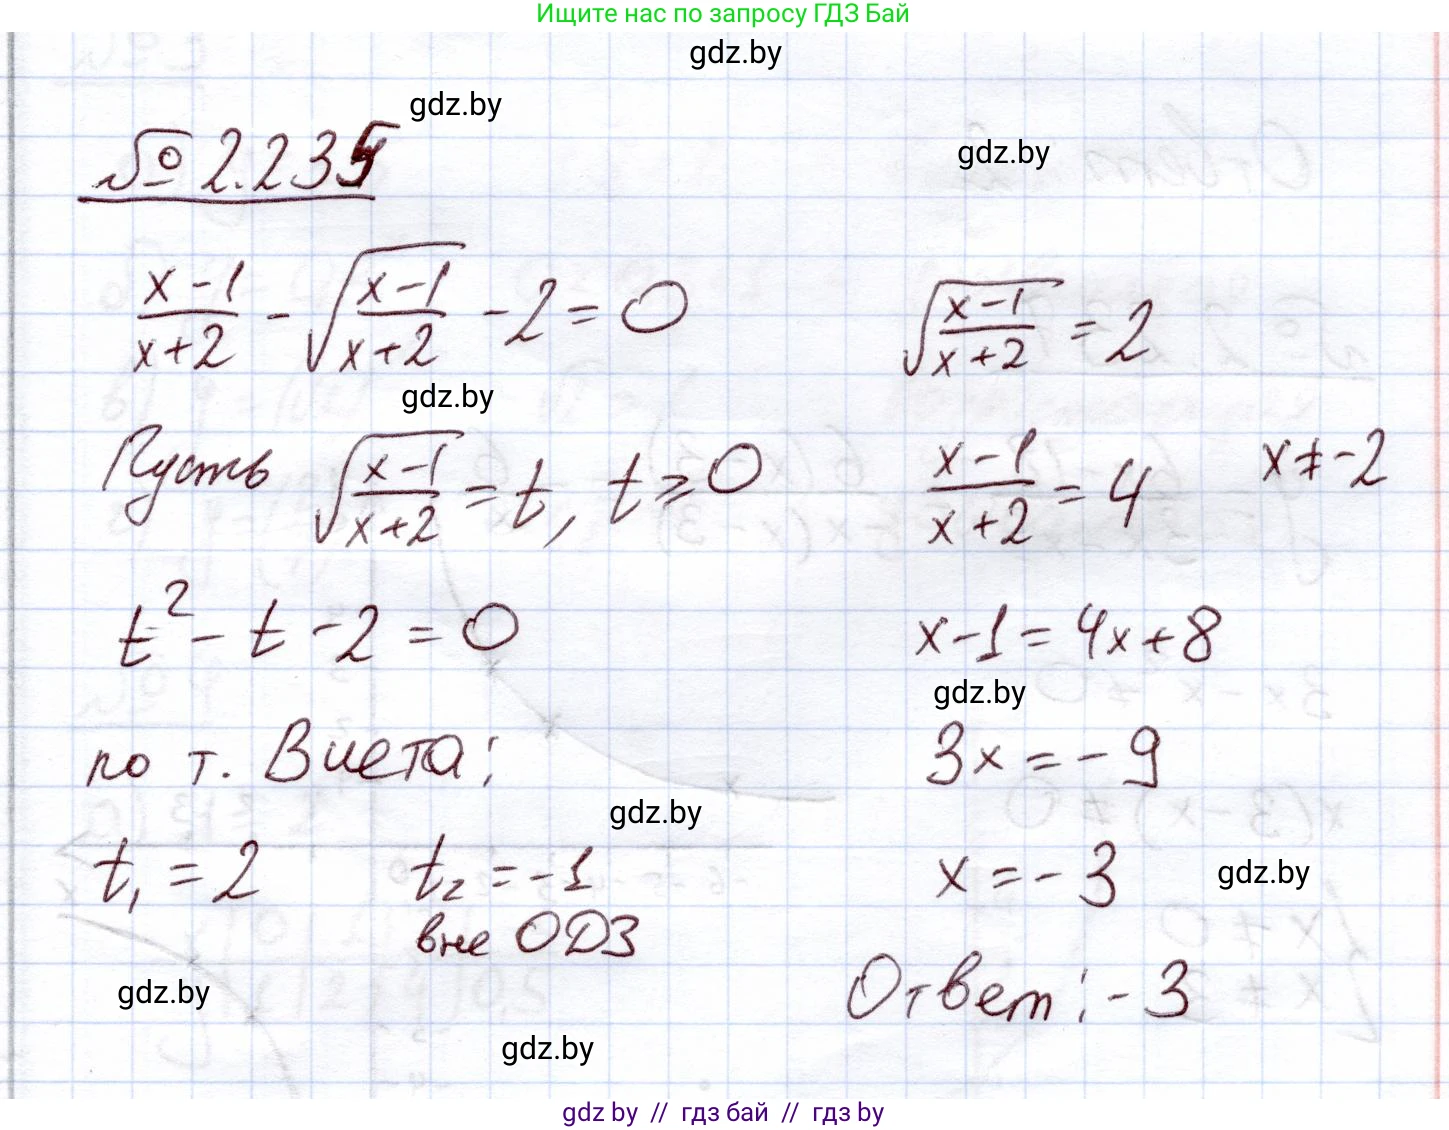 Ищите нас по запросу ГДЗ Бай
gdz.by
gdz.by
gdz.by
№ 2.235
(x-1)/(x+2) - √((x-1)/(x+2)) - 2 = 0
gdz.by
Пусть √((x-1)/(x+2)) = t, t ⩾ 0
t² - t - 2 = 0
по т. Виета:
gdz.by
t₁ = 2 t₂ = -1
вне ОДЗ
gdz.by
gdz.by
√((x-1)/(x+2)) = 2
(x-1)/(x+2) = 4 x ≠ -2
x-1 = 4x+8
gdz.by
3x = -9
x = -3
gdz.by
Ответ: -3
gdz by // гдз бай // гдз by